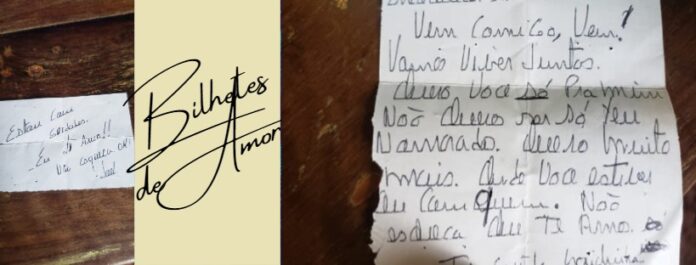 Eu te Amo!!
Não esqueça dit
Bilhetes
de Amor
Vem Comigo, Vem!
Vamos Viver Juntos.
Quero Você só Pra mim
Não Quero ser só seu
Namorado. Quero muito
mais. Onde Você estiver
eu com quem. Não
esqueça Que Te Amo.